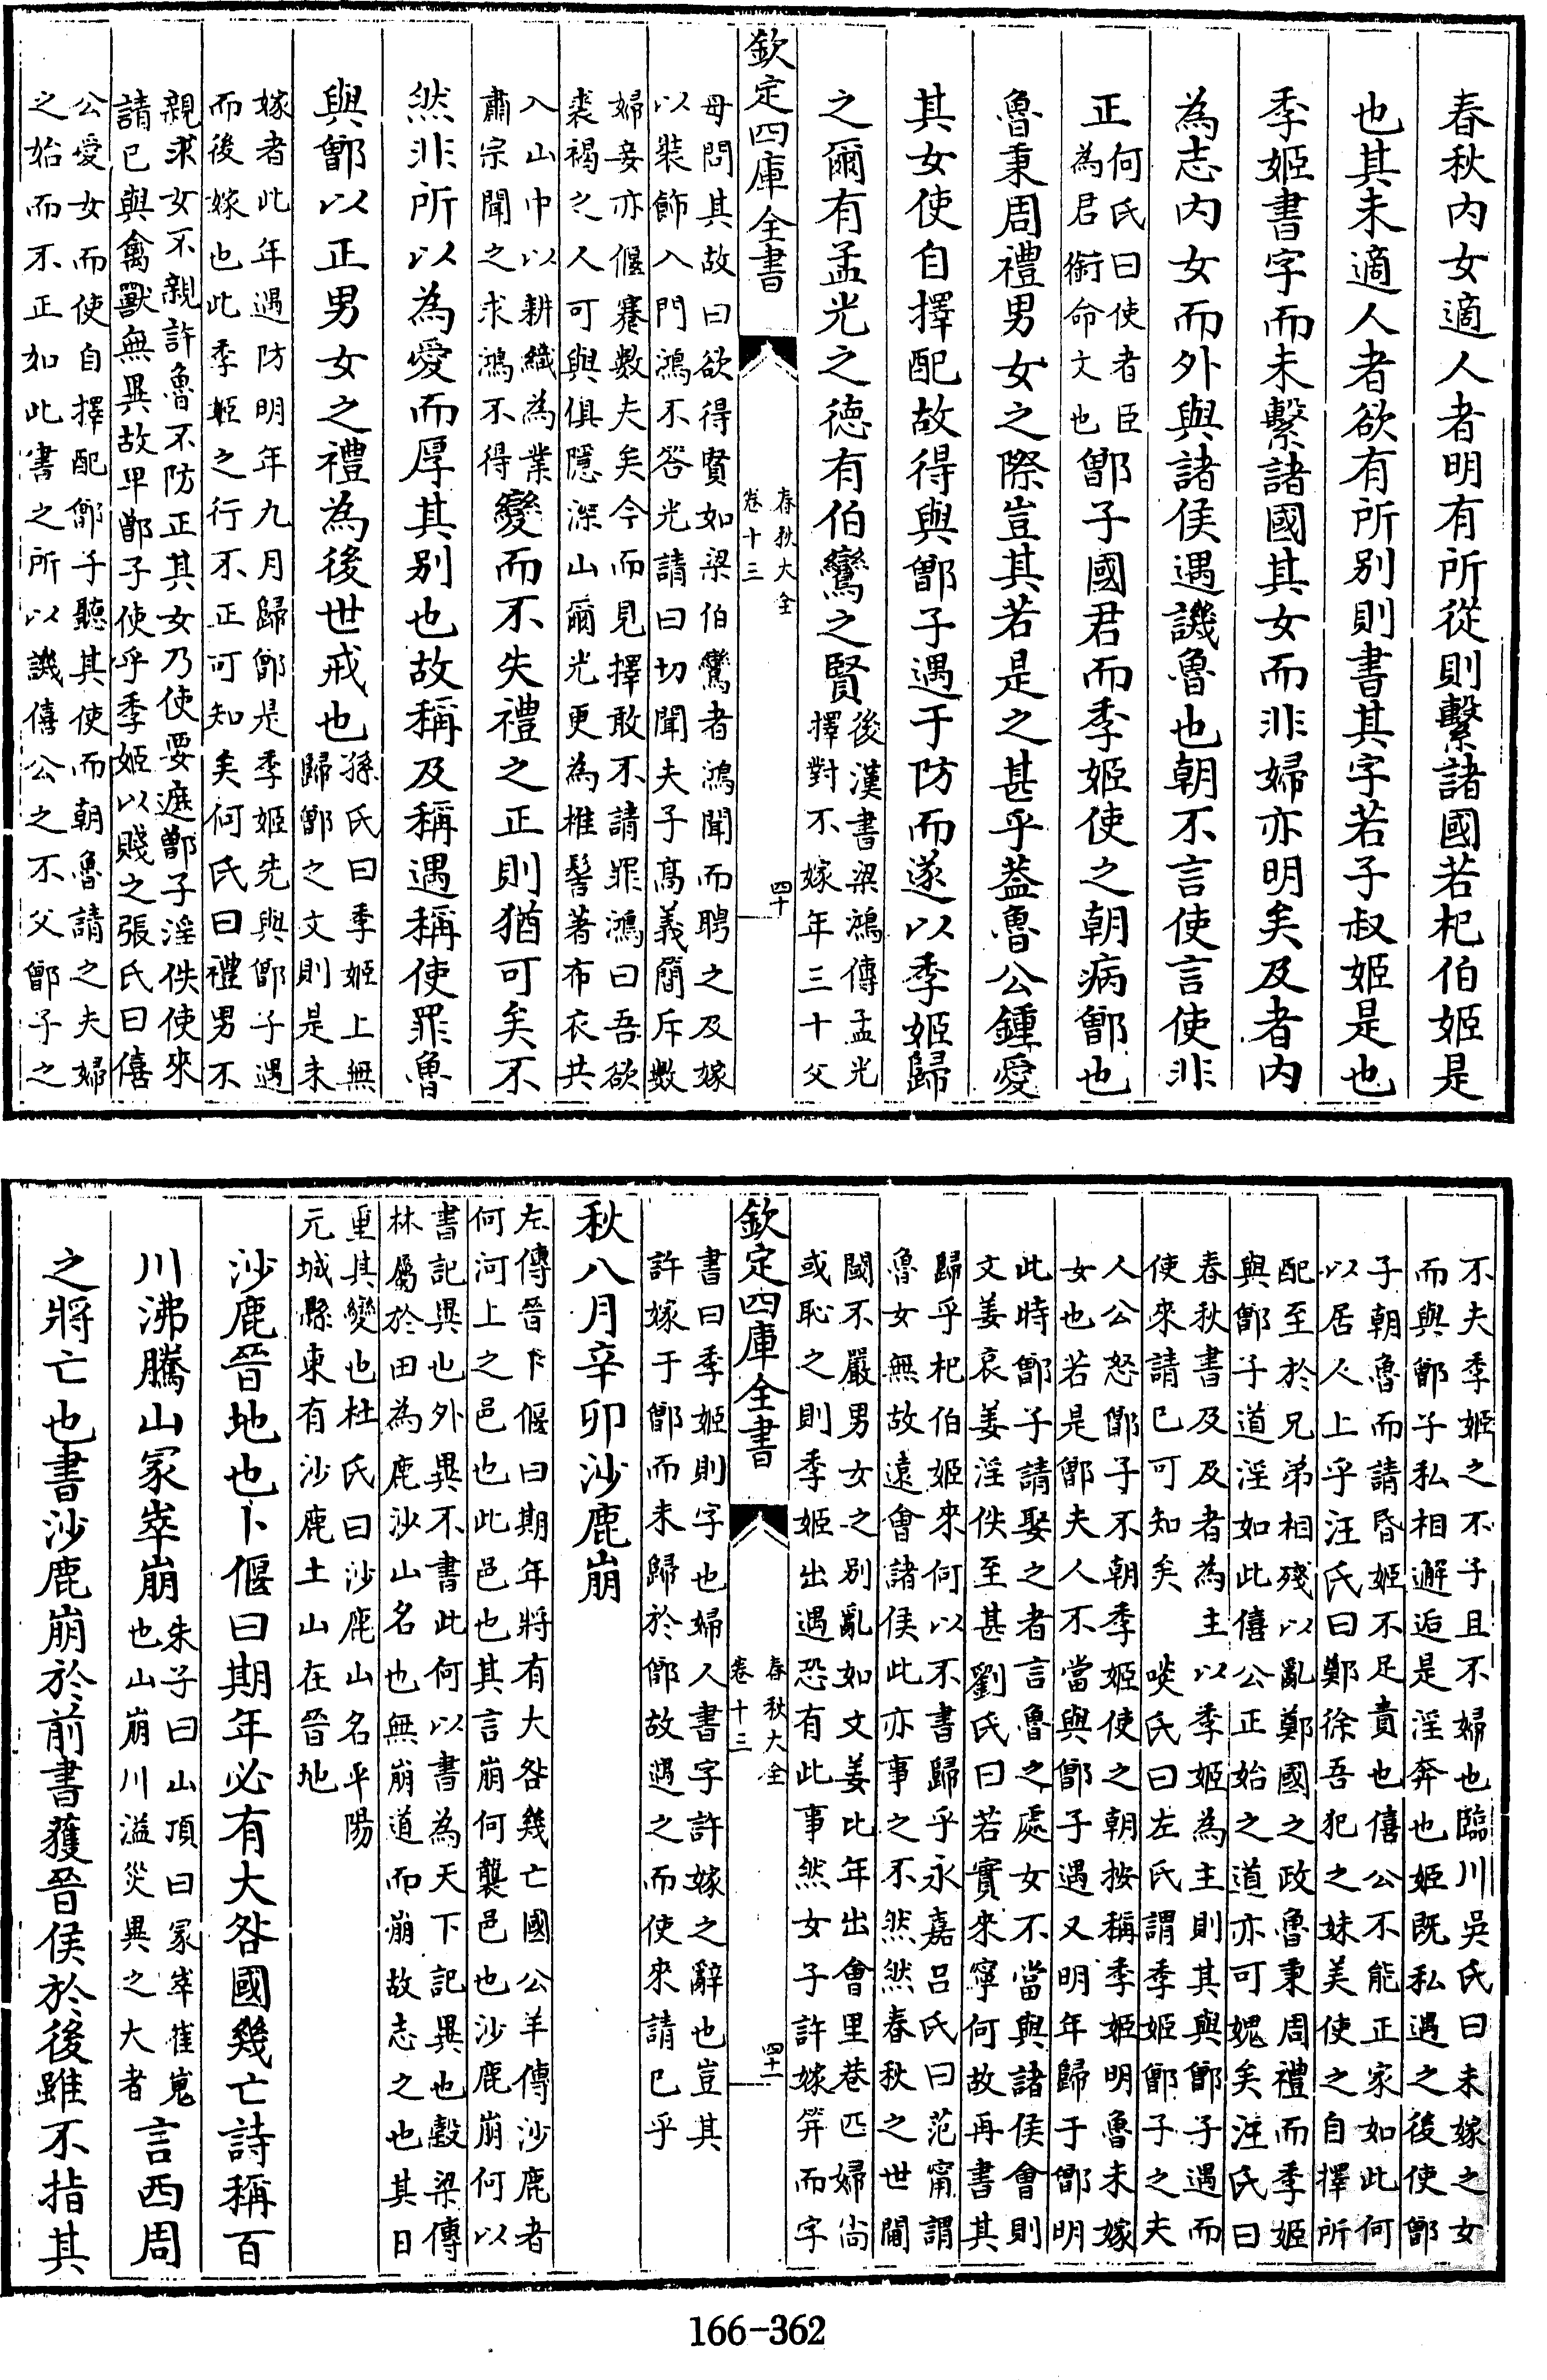 春秋内女適人者明有所從則繫諸國若杞伯姬是
也其未適人者欲有所别則書其字若子叔姬是也
季姬書字而未繫諸國其女而非婦亦明矣及者内
為志内女而外與諸侯遇譏魯也朝不言使言使非
正
何氏曰使者臣
為君銜命文也
鄫子國君而季姬使之朝病鄫也
魯秉周禮男女之際豈其若是之甚乎蓋魯公鍾愛
其女使自擇配故得與鄫子遇于防而遂以季姬歸
之爾有孟光之德有伯鸞之賢
後漢書梁鴻傳孟光
擇對不嫁年三十父
欽定四庫全書
春秋大全
卷十三
四十
母問其故曰欲得賢如梁伯鸞者鴻聞而聘之及嫁
以裝飾入門鴻不答光請曰切聞夫子高義簡斥數
婦妾亦偃蹇數夫矣今而見擇敢不請罪鴻曰吾欲
裘褐之人可與俱隱深山爾光更為椎髻著布衣共
入山中以耕織為業
肅宗聞之求鴻不得
變而不失禮之正則猶可矣不
然非所以為愛而厚其别也故稱及稱遇稱使罪魯
與鄫以正男女之禮為後世戒也
孫氏曰季姬上無
歸鄫之文則是未
嫁者此年遇防明年九月歸鄫是季姬先與鄫子遇
而後嫁也此季姬之行不正可知矣何氏曰禮男不
親求女不親許魯不防正其女乃使要遮鄫子淫佚使來
請已與禽獸無異故卑鄫子使乎季姬以賤之張氏曰僖
公愛女而使自擇配鄫子聽其使而朝魯請之夫婦
之始而不正如此書之所以譏僖公之不父鄫子之
不夫季姬之不子且不婦也臨川吳氏曰未嫁之女
而與鄫子私相邂逅是淫奔也姬既私遇之後使鄫
子朝魯而請昏姬不足責也僖公不能正家如此何
以居人上乎汪氏曰鄭徐吾犯之妹美使之自擇所
配至於兄弟相殘以亂鄭國之政魯秉周禮而季姬
與鄫子道淫如此僖公正始之道亦可媿矣汪氏曰
春秋書及及者為主以季姬為主則其與鄫子遇而
使來請已可知矣　啖氏曰左氏謂季姬鄫子之夫
人公怒鄫子不朝季姬使之朝按稱季姬明魯未嫁
女也若是鄫夫人不當與鄫子遇又明年歸于鄫明
此時鄫子請娶之者言魯之處女不當與諸侯會則
文姜哀姜淫佚至甚劉氏曰若實來寧何故再書其
歸乎杞伯姬來何以不書歸乎永嘉吕氏曰范甯謂
魯女無故遠會諸侯此亦事之不然然春秋之世閨
閫不嚴男女之别亂如文姜比年出會里巷匹婦尚
或恥之則季姬出遇恐有此事然女子許嫁笄而字
欽定四庫全書
春秋大全
卷十三
四十一
書曰季姬則字也婦人書字許嫁之辭也豈其
許嫁于鄫而未歸於鄫故遇之而使來請已乎
秋八月辛卯沙鹿崩
左傳晉卜偃曰期年將有大咎幾亡國公羊傳沙鹿者
何河上之邑也此邑也其言崩何襲邑也沙鹿崩何以
書記異也外異不書此何以書為天下記異也穀梁傳
林屬於田為鹿沙山名也無崩道而崩故志之也其日
重其變也杜氏曰沙鹿山名平陽
元城縣東有沙鹿土山在晉地
沙鹿晉地也卜偃曰期年必有大咎國幾亡詩稱百
川沸騰山冢崒崩
朱子曰山頂曰冢崒崔嵬
也山崩川溢災異之大者
言西周
之將亡也書沙鹿崩於前書獲晉侯於後雖不指其
166-362